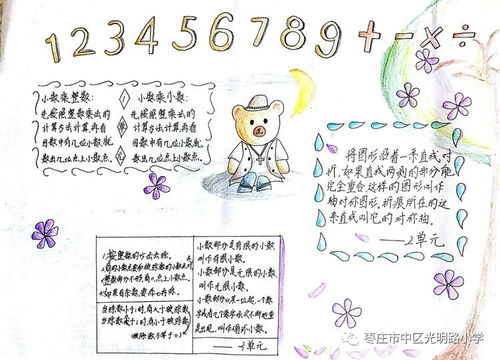 1 2 3 4 5 6 7 8 9 + - × ÷
小数乘整数:
先按照整数乘法的
计算方法计算,再看
因数中有几位小数,就
数出几位点上小数点.
1
单
元
小数乘小数:
先按照整数乘法的
计算方法计算,再看
因数中有几位小数,就
数出几位点上小数点.
将图形沿着一条直线对
折,如果直线两侧的部分能
完全重合,这样的图形叫作
轴对称图形,折痕所在的这
条直线叫它的对称轴.
——2单元
按整数的方法去除.
如果有余数,要添0再除.
当除数小于1时,商大于被除数
当除数大于1时,商小于被除数
(被除数不等于0)
小数部分是有限的小数
叫作有限小数.
小数部分是无限的小数
叫作无限小数.
小数部分从某一位起,一个数
字或几个数字依次不断地重
复出现,叫作循环小数.
——3单元
枣庄市中区光明路小学